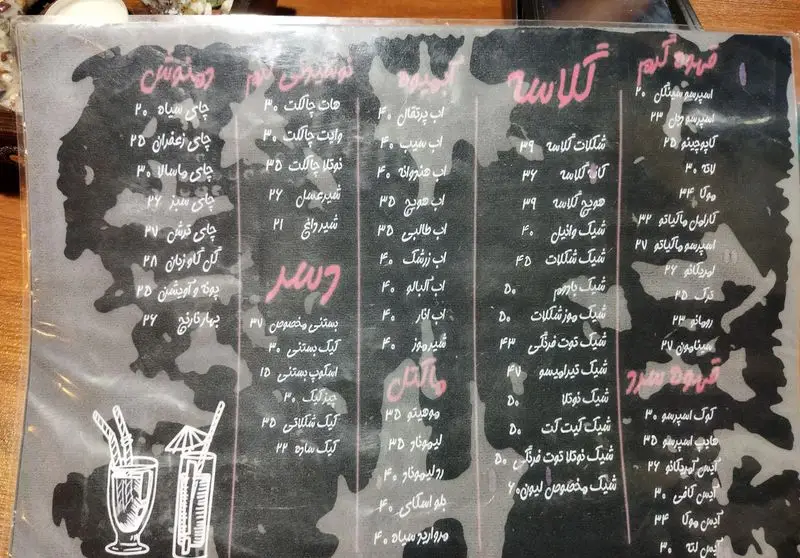 قهوه گرم
اسپرسو سینگل ۲۰
اسپرسو دبل ۲۳
کاپوچینو ۲۵
لاته ۳۰
موکا ۳۴
کارامل ماکیاتو ۳۲
اسپرسو ماکیاتو ۲۷
امریکانو ۲۶
ترک ۲۵
رومانو ۲۳
سینامون ۲۷
قهوه سرد
کوک اسپرسو ۳۰
هایپ اسپرسو ۳۵
آیس آمریکانو ۲۶
آیس کافی ۳۰
آیس موکا ۳۴
آیس لته ۳۰
گلاسه
شکلات گلاسه ۳۹
کافه گلاسه ۳۶
هویج گلاسه ۳۹
شیک وانیل ۴۰
شیک شکلات ۴۵
شیک بادوم ۵۰
شیک موز شکلات ۵۰
شیک توت فرنگی ۴۳
شیک تیرامیسو ۴۷
شیک نوتلا ۵۰
شیک کیت کت ۵۰
شیک نوتلا توت فرنگی ۵۰
شیک مخصوص لیمون ۶۰
آبمیوه
اب پرتقال ۴۰
اب سیب ۴۰
اب هندوانه ۴۰
اب هویج ۳۵
اب طالبی ۳۵
اب زرشک ۴۰
اب آلبالو ۴۰
اب انار ۴۰
شیر موز ۴۰
ماکتل
موهیتو ۳۵
لیموناد ۳۵
رد لیموناد ۴۰
بلو اسکای ۴۰
مروارید سیاه ۴۰
نوشیدنی گرم
هات چاکلت ۳۰
وایت چاکلت ۳۰
نوتلا چاکلت ۳۵
شیر عسل ۲۶
شیر داغ ۲۱
دسر
بستنی مخصوص ۳۷
کیک بستنی ۳۰
اسکوپ بستنی ۱۵
چیز کیک ۳۰
کیک شکلاتی ۳۵
کیک ساده ۲۲
دمنوش
چای سیاه ۲۰
چای زعفران ۲۵
چای ماسالا ۳۰
چای سبز ۲۶
چای ترش ۲۷
گل گاو زبان ۲۸
پونه و آویشن ۲۵
بهار نارنج ۲۶